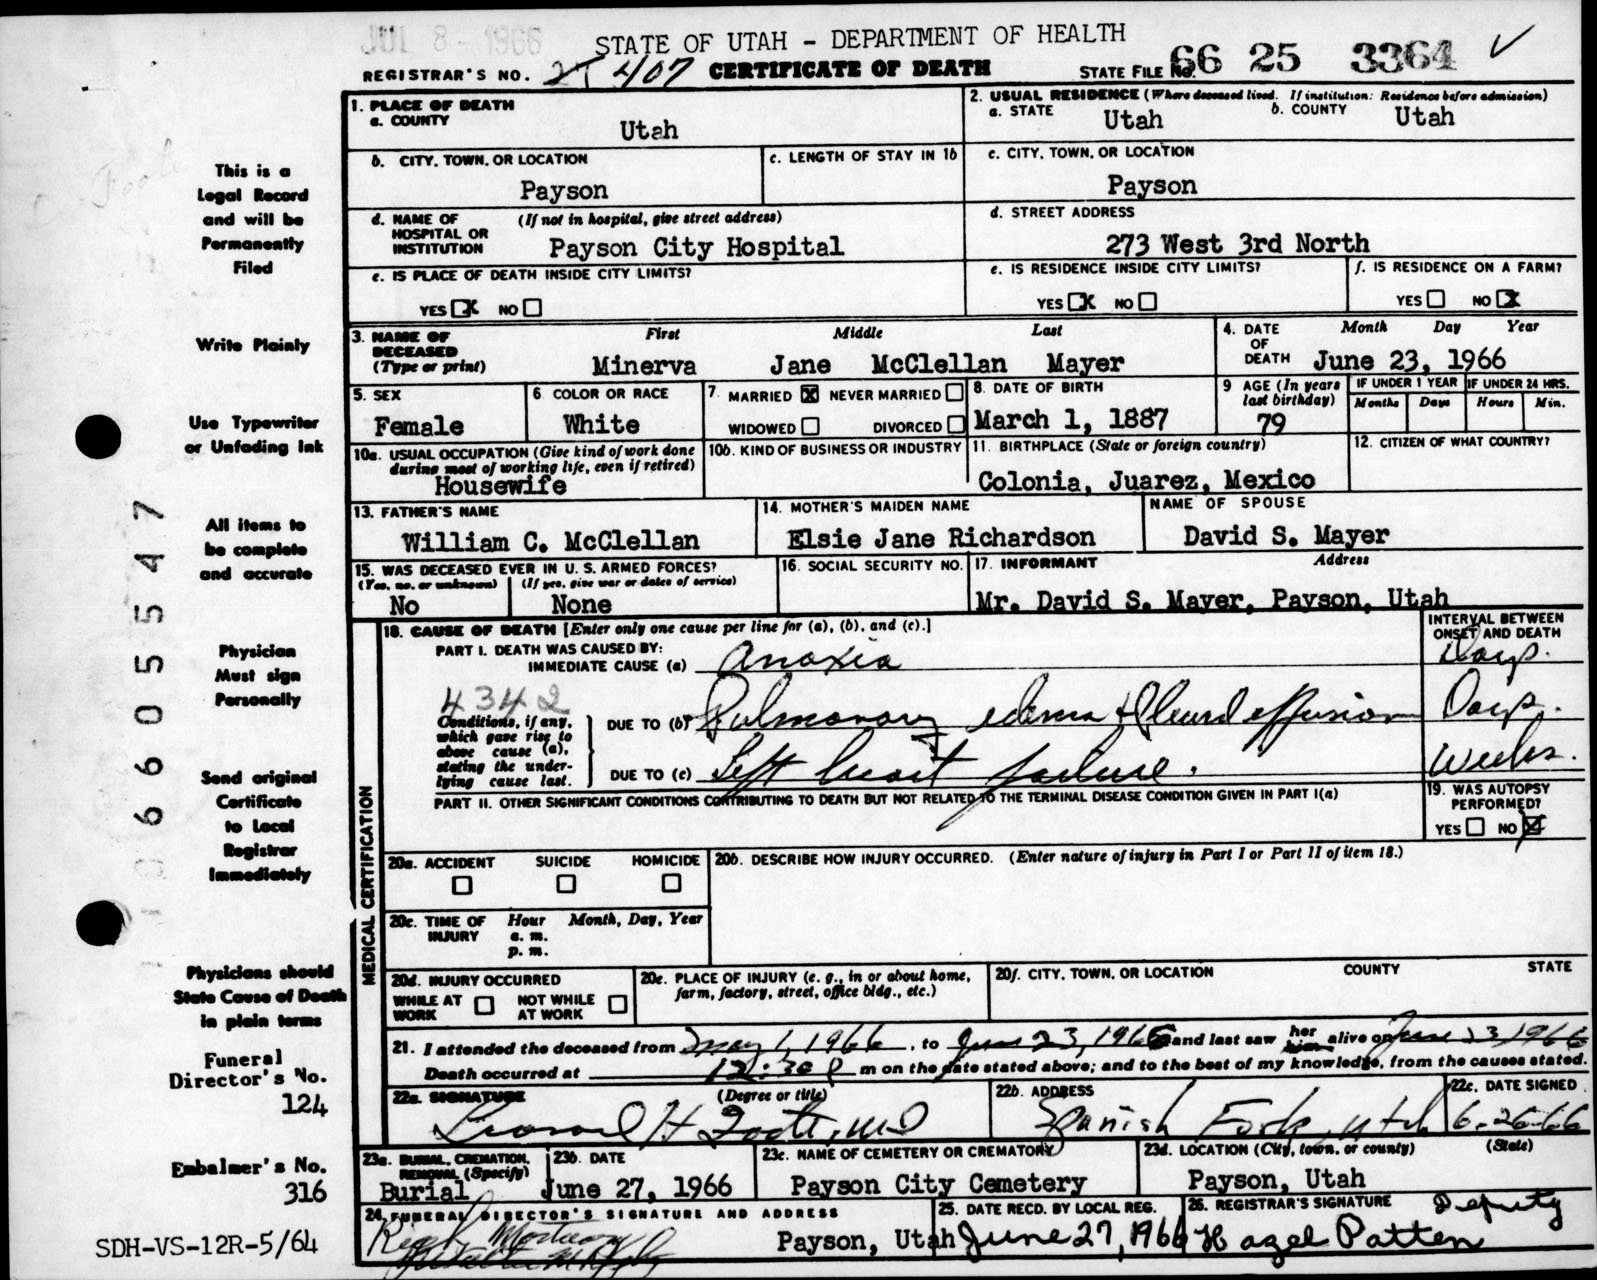 JUL 8 - 1966
STATE OF UTAH - DEPARTMENT OF HEALTH
REGISTRAR'S NO. 407 CERTIFICATE OF DEATH STATE FILE NO. 66 25 3364
This is a
Legal Record
and will be
Permanently
Filed
Write Plainly
Use Typewriter
or Unfading Ink
All items to
be complete
and accurate
Physician
Must sign
Personally
Send original
Certificate
to Local
Registrar
Immediately
Physicians should
State Cause of Death
in plain terms
Funeral
Director's No.
124
Embalmer's No.
316
SDH-VS-12R-5/64
06605547
Foote
1. PLACE OF DEATH
a. COUNTY
Utah
2. USUAL RESIDENCE (Where deceased lived. If institution: Residence before admission)
a. STATE Utah b. COUNTY Utah
b. CITY, TOWN, OR LOCATION
Payson
c. LENGTH OF STAY IN 1b
c. CITY, TOWN, OR LOCATION
Payson
d. NAME OF HOSPITAL OR INSTITUTION (If not in hospital, give street address)
Payson City Hospital
d. STREET ADDRESS
273 West 3rd North
e. IS PLACE OF DEATH INSIDE CITY LIMITS?
YES X NO
e. IS RESIDENCE INSIDE CITY LIMITS?
YES X NO
f. IS RESIDENCE ON A FARM?
YES NO X
3. NAME OF DECEASED (Type or print)
First Middle Last
Minerva Jane McClellan Mayer
4. DATE OF DEATH Month Day Year
June 23, 1966
5. SEX
Female
6. COLOR OR RACE
White
7. MARRIED X NEVER MARRIED
WIDOWED DIVORCED
8. DATE OF BIRTH
March 1, 1887
9 AGE (In years last birthday)
79
IF UNDER 1 YEAR IF UNDER 24 HRS.
Months Days Hours Min.
10a. USUAL OCCUPATION (Give kind of work done
during most of working life, even if retired)
Housewife
10b. KIND OF BUSINESS OR INDUSTRY
11. BIRTHPLACE (State or foreign country)
Colonia, Juarez, Mexico
12. CITIZEN OF WHAT COUNTRY?
13. FATHER'S NAME
William C. McClellan
14. MOTHER'S MAIDEN NAME
Elsie Jane Richardson
NAME OF SPOUSE
David S. Mayer
15. WAS DECEASED EVER IN U. S. ARMED FORCES?
(Yes, no, or unknown) (If yes, give war or dates of service)
No None
16. SOCIAL SECURITY NO.
17. INFORMANT Address
Mr. David S. Mayer, Payson, Utah
MEDICAL CERTIFICATION
18. CAUSE OF DEATH [Enter only one cause per line for (a), (b), and (c).]
INTERVAL BETWEEN
ONSET AND DEATH
PART I. DEATH WAS CAUSED BY:
IMMEDIATE CAUSE (a) Anoxia Days.
4342
Conditions, if any,
which gave rise to
above cause (a),
stating the under-
lying cause last.
DUE TO (b) Pulmonary edema & Pleural effusion Days.
DUE TO (c) Left heart failure. Weeks.
PART II. OTHER SIGNIFICANT CONDITIONS CONTRIBUTING TO DEATH BUT NOT RELATED TO THE TERMINAL DISEASE CONDITION GIVEN IN PART I(a)
19. WAS AUTOPSY
PERFORMED?
YES NO X
20a. ACCIDENT SUICIDE HOMICIDE
20b. DESCRIBE HOW INJURY OCCURRED. (Enter nature of injury in Part I or Part II of item 18.)
20c. TIME OF INJURY Hour Month, Day, Year
a. m.
p. m.
20d. INJURY OCCURRED
WHILE AT WORK NOT WHILE AT WORK
20e. PLACE OF INJURY (e. g., in or about home,
farm, factory, street, office bldg., etc.)
20f. CITY, TOWN, OR LOCATION COUNTY STATE
21. I attended the deceased from May 1, 1966, to June 23, 1966 and last saw her him alive on June 23 1966
Death occurred at 12:30 P m on the date stated above; and to the best of my knowledge, from the causes stated.
22a. SIGNATURE (Degree or title)
Leonard H Foote, MD
22b. ADDRESS
Spanish Fork, Utah
22c. DATE SIGNED
6-26-66
23a. BURIAL, CREMATION,
REMOVAL (Specify)
Burial
23b. DATE
June 27, 1966
23c. NAME OF CEMETERY OR CREMATORY
Payson City Cemetery
23d. LOCATION (City, town, or county) (State)
Payson, Utah
24. FUNERAL DIRECTOR'S SIGNATURE AND ADDRESS
Mortuary
Payson, Utah
25. DATE RECD. BY LOCAL REG.
June 27, 1966
26. REGISTRAR'S SIGNATURE Deputy
Hazel Patten